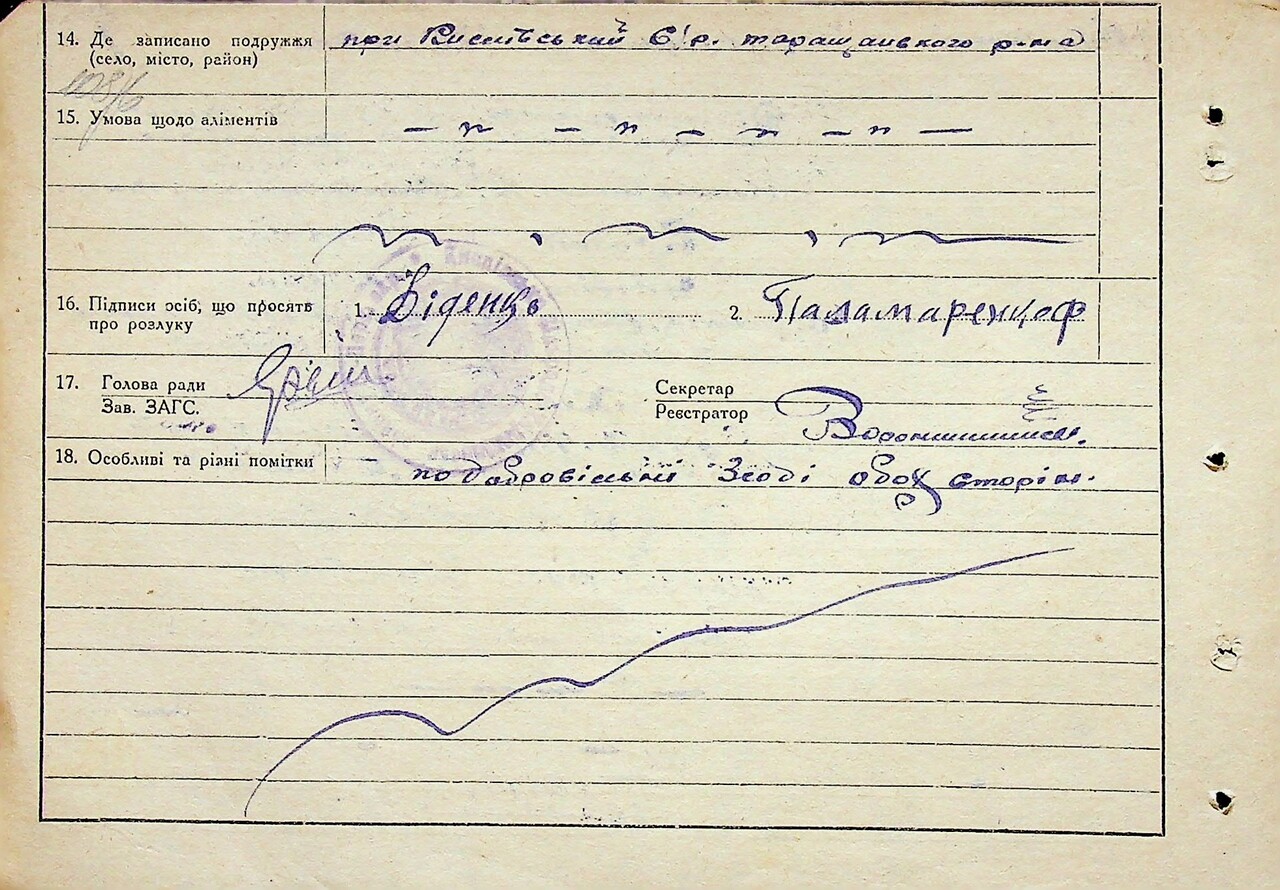 14. Де записано подружжя (село, місто, район) при Р/р. таращанського р-на
15. Умова щодо аліментів — п — п — п — п —
16. Підписи осіб, що просять про розлуку 1. Діденко 2. Паламаренко
17. Голова ради
Зав. ЗАГС.
Секретар
Реєстратор
18. Особливі та різні помітки — по добровільній згоді обох сторін.